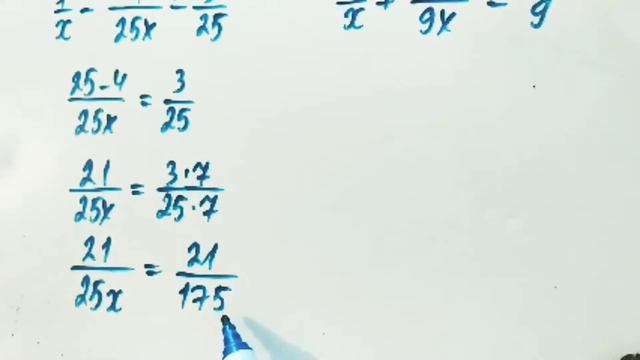 1/x - 4/25x = 3/25
/x + /9x = /9
(25-4)/25x = 3/25
21/25x = (3·7)/(25·7)
21/25x = 21/175